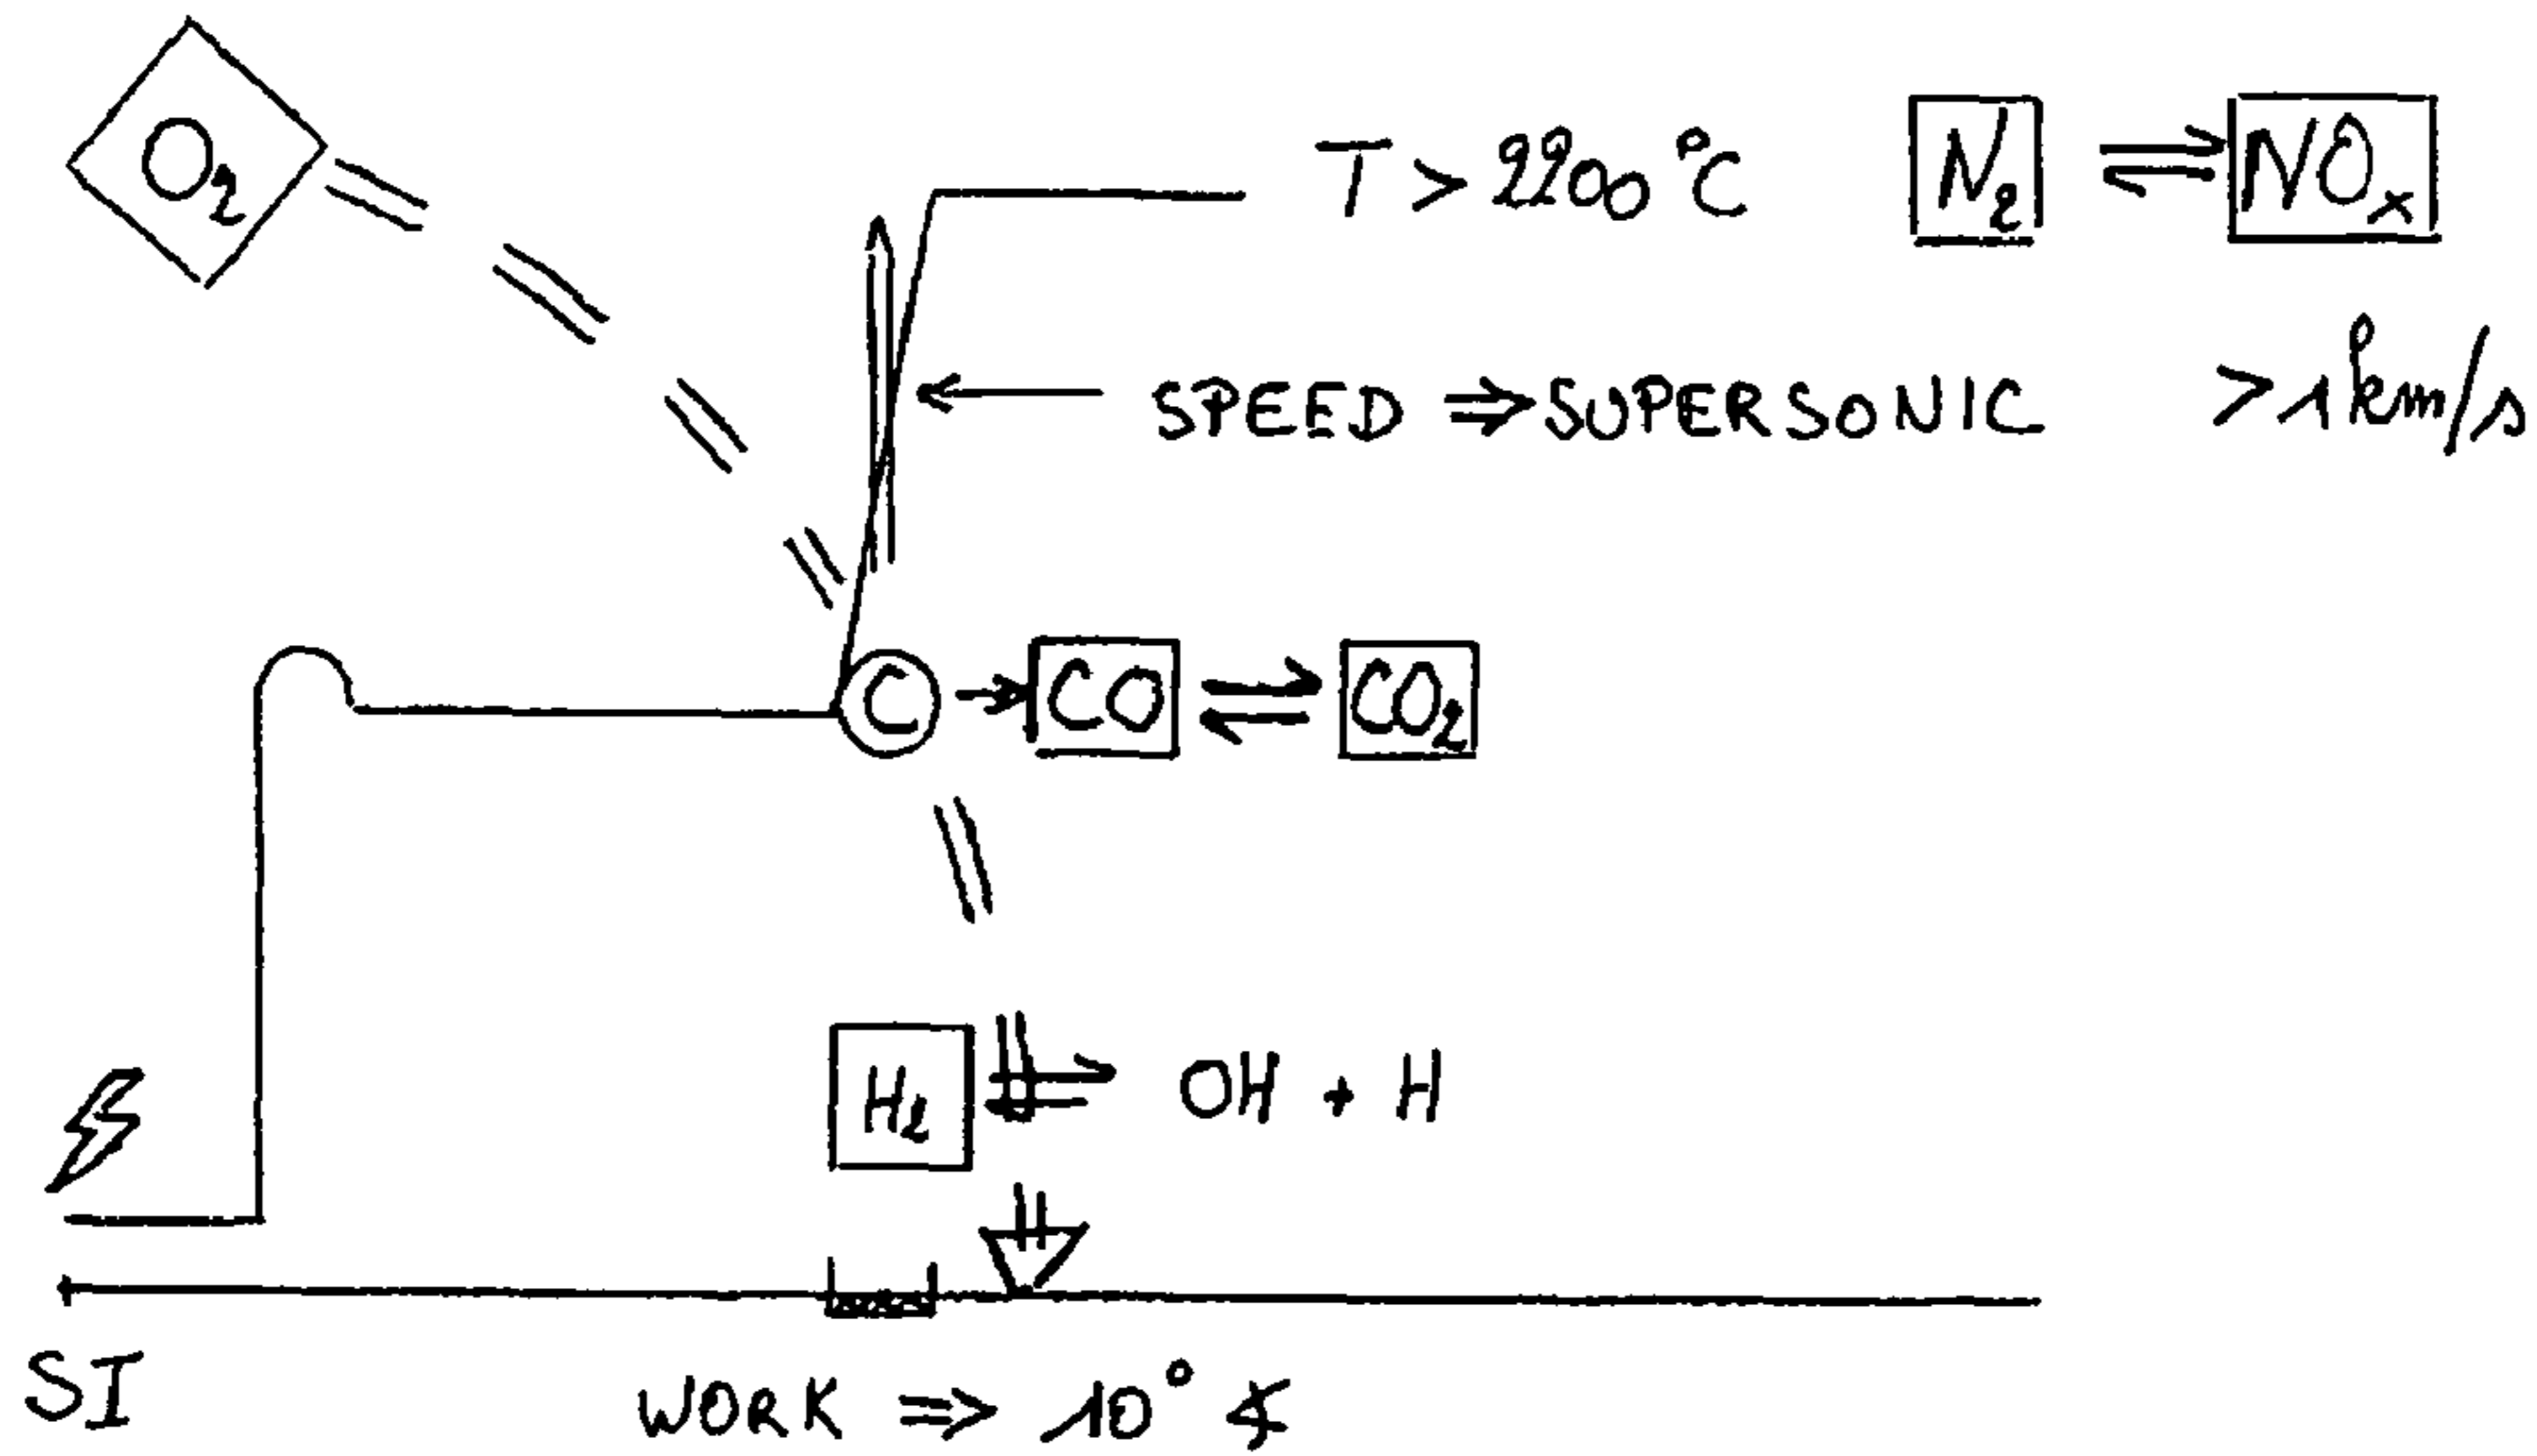 O₂
T > 2200 °C N₂ ⇌ NOₓ
SPEED ⇒ SUPERSONIC > 1 km/s
C → CO ⇌ CO₂
H₂ ⇌ OH + H
SI
WORK ⇒ 10° ∢